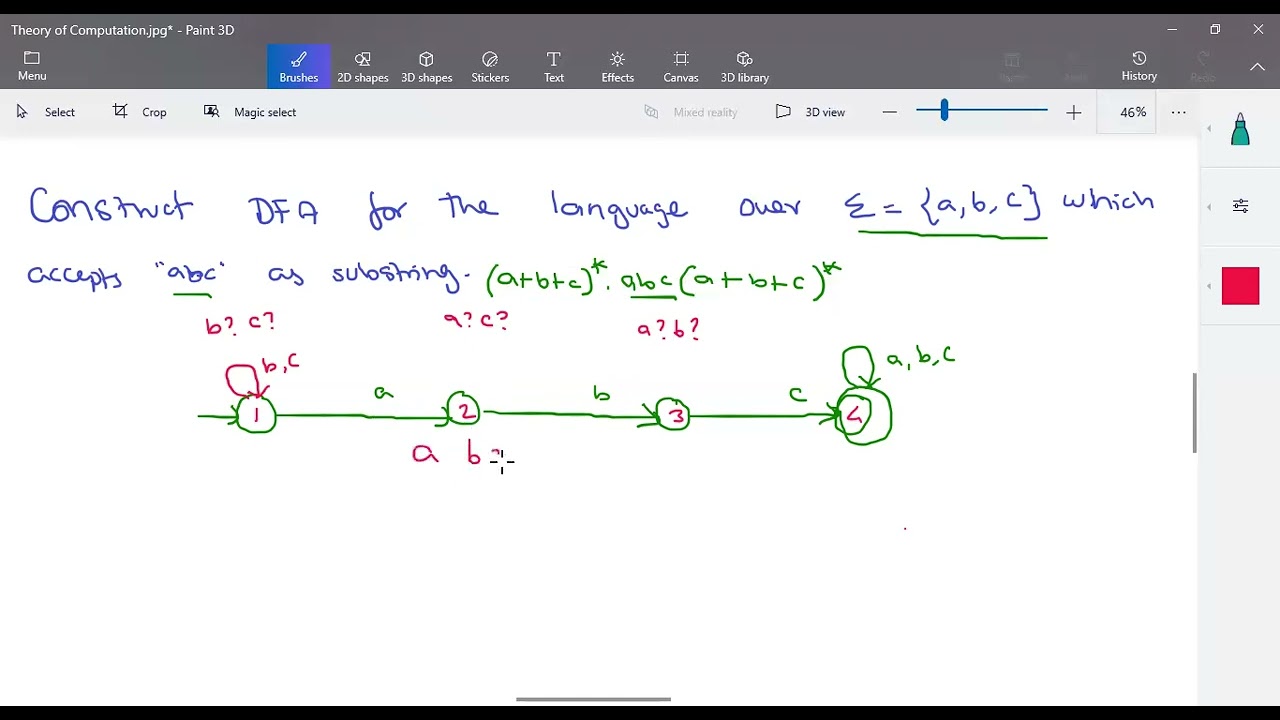 Theory of Computation.jpg* - Paint 3D
Menu
Brushes
2D shapes
3D shapes
Stickers
Text
Effects
Canvas
3D library
History
Redo
Select
Crop
Magic select
Mixed reality
3D view
46%
Construct DFA for the language over Σ = {a, b, c} which
accepts "abc" as substring. (a+b+c)*. abc (a+b+c)*
b? c? a? c? a? b?
b,c a, b, c
a b c
1 2 3 4
a b